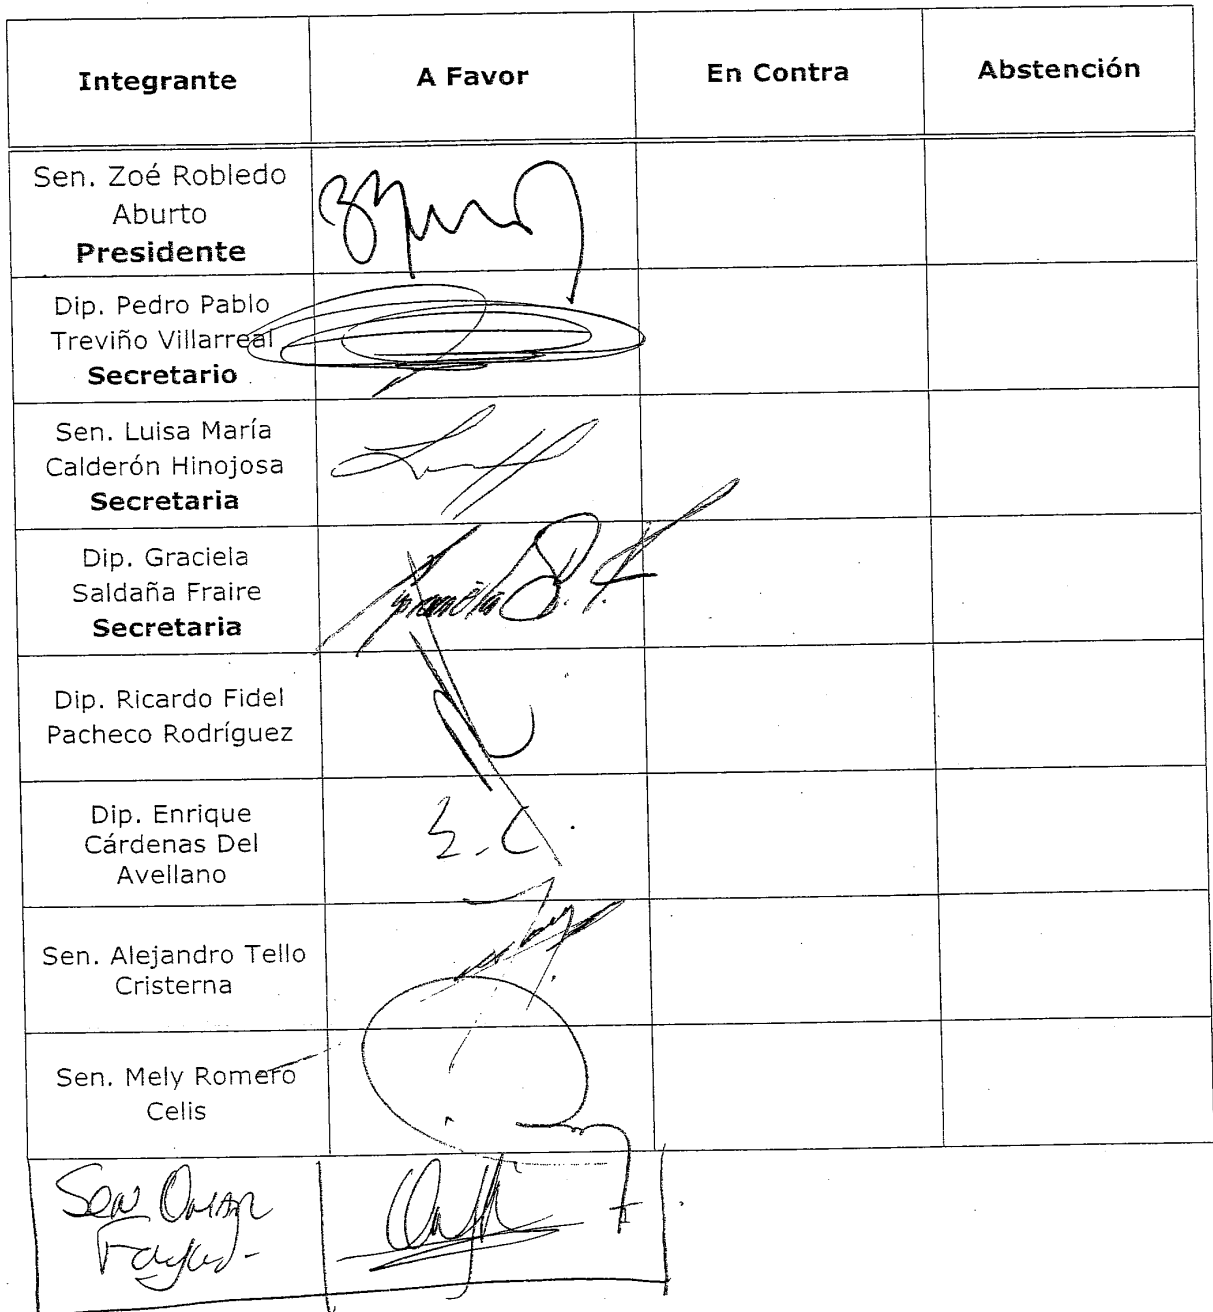 Integrante A Favor En Contra Abstención
Sen. Zoé Robledo
Aburto
Presidente
Dip. Pedro Pablo
Treviño Villarreal
Secretario
Sen. Luisa María
Calderón Hinojosa
Secretaria
Dip. Graciela
Saldaña Fraire
Secretaria
Graciela S. F.
Dip. Ricardo Fidel
Pacheco Rodríguez
Dip. Enrique
Cárdenas Del
Avellano
E. C.
Sen. Alejandro Tello
Cristerna
Sen. Mely Romero
Celis
Sen Omar
Fayad-